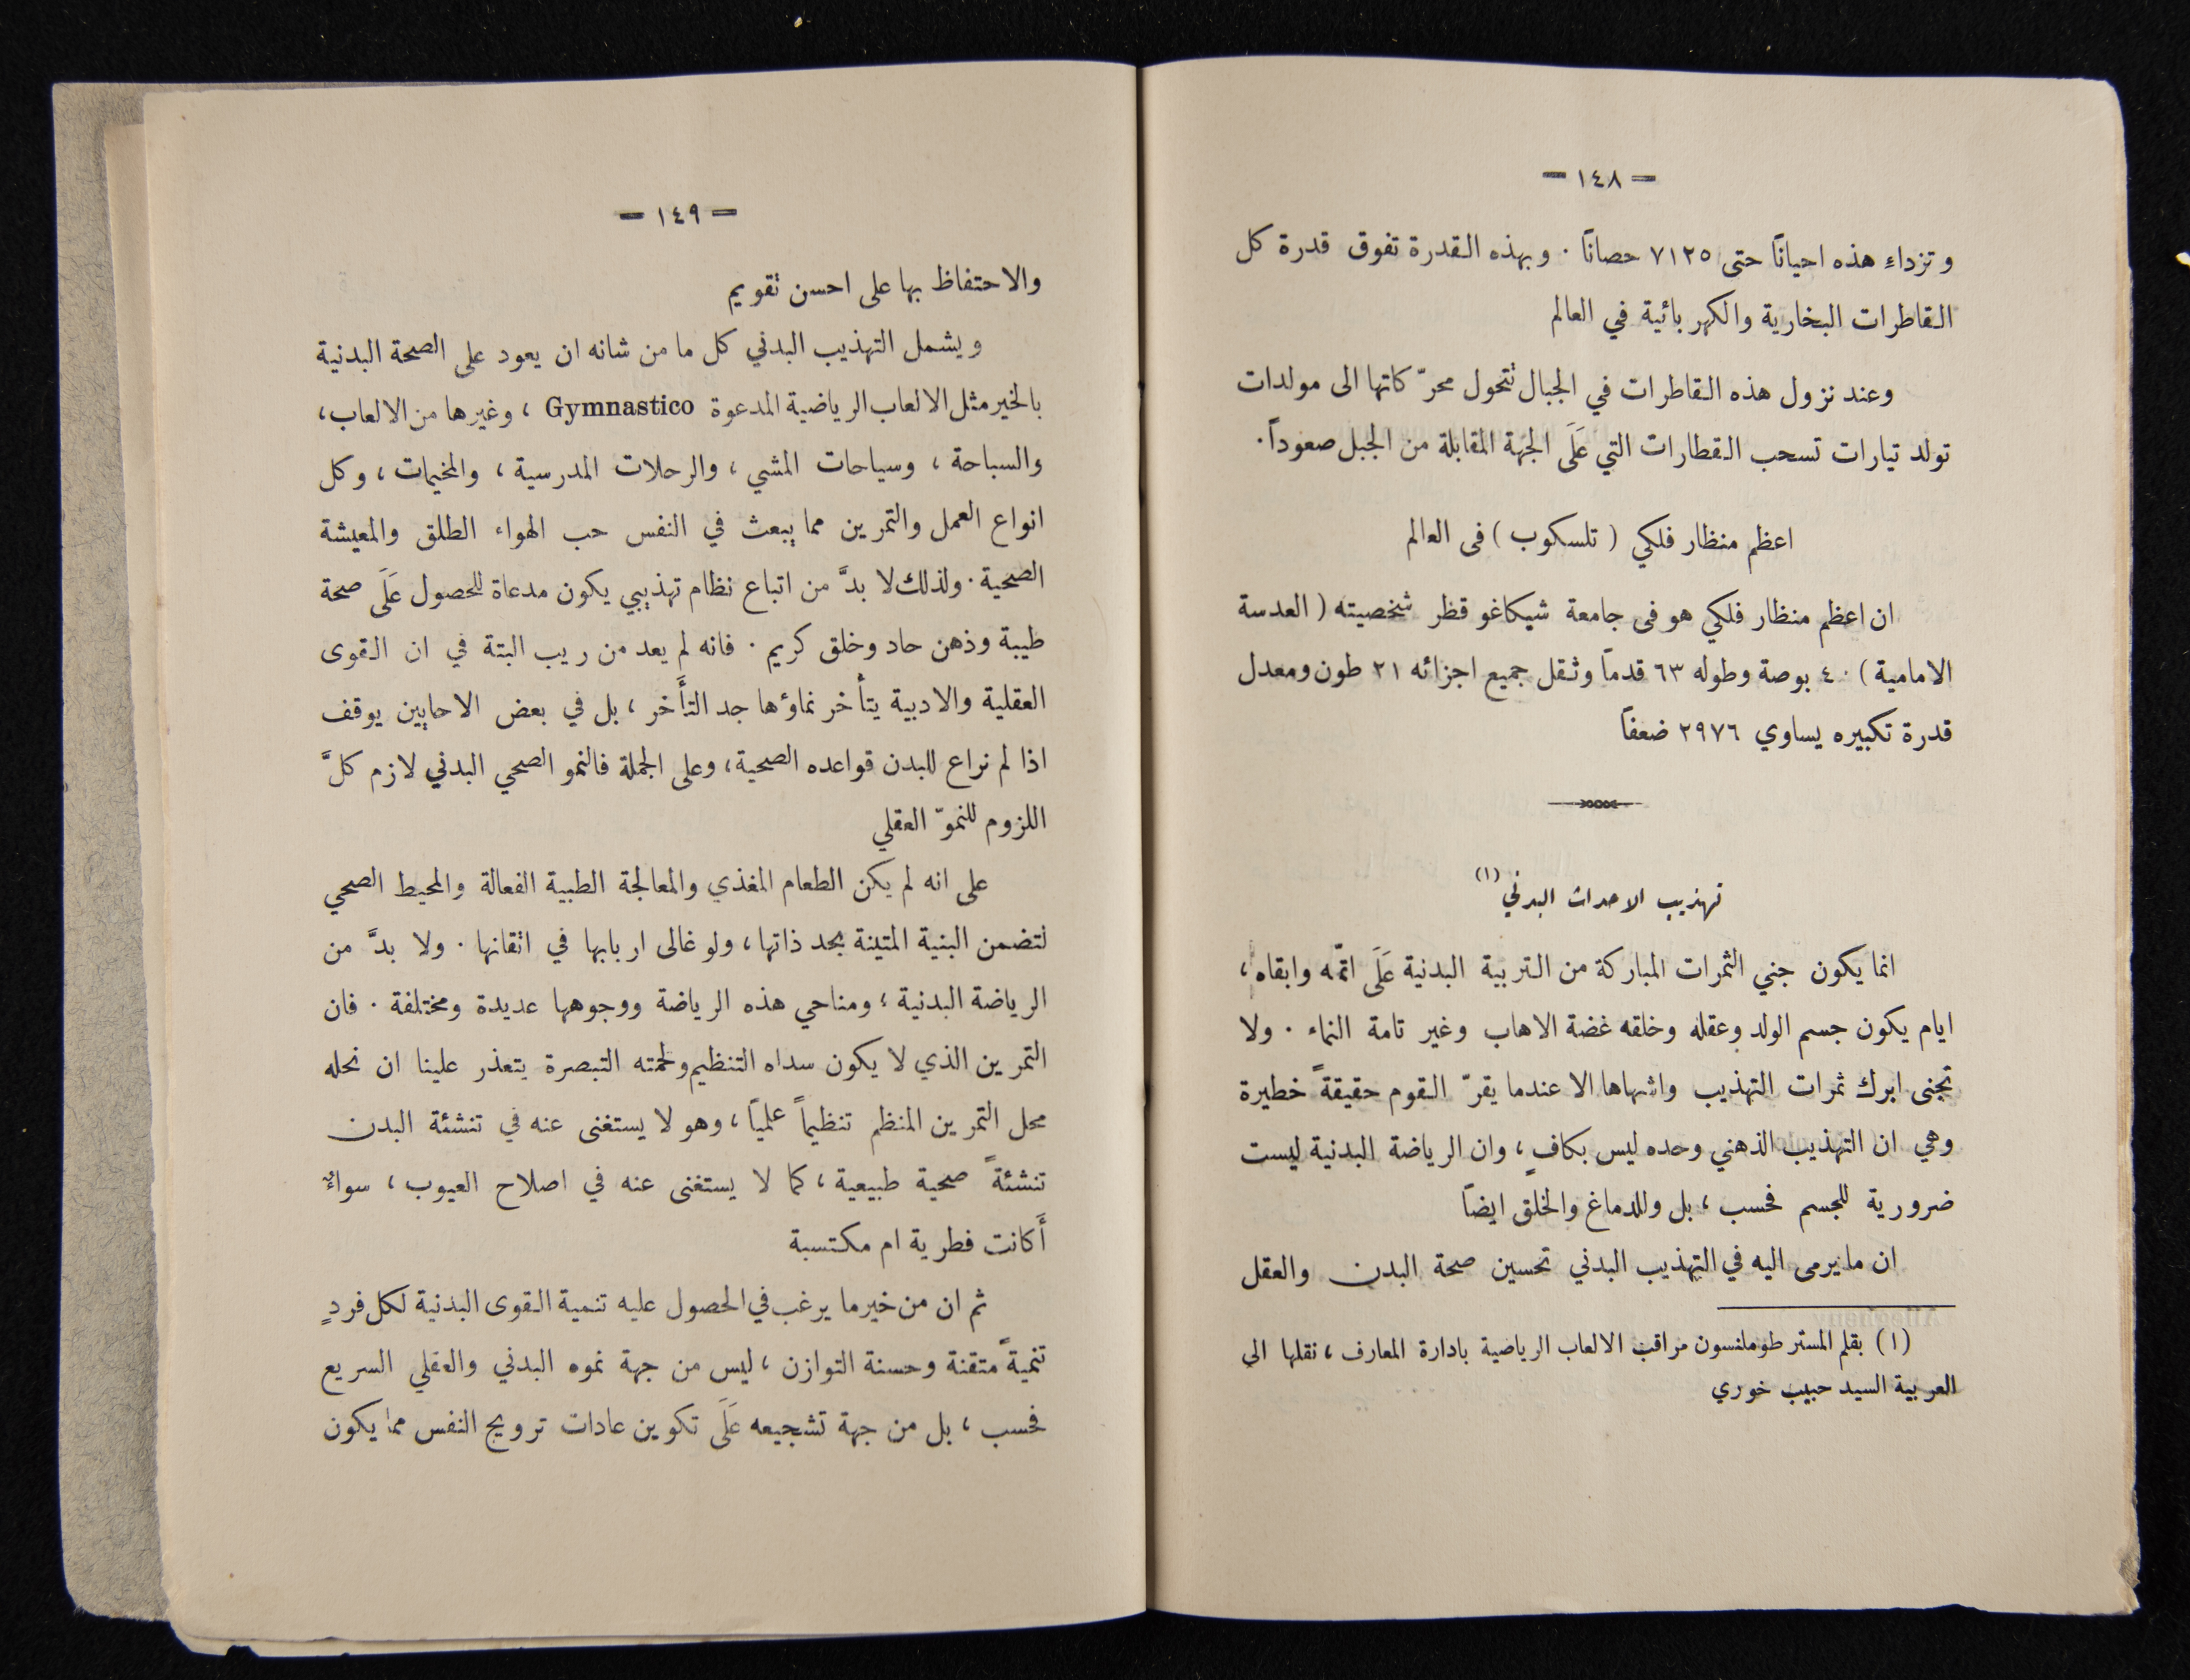 — ١٤٨ —
وتزداء هذه احيانًا حتى ٧١٢٥ حصانًا . وبهذه القدرة تفوق قدرة كل
القاطرات البخارية والكهربائية في العالم
وعند نزول هذه القاطرات في الجبال تتحول محرّكاتها الى مولدات
تولد تيارات تسحب القطارات التي عَلَى الجهة المقابلة من الجبل صعوداً.
اعظم منظار فلكي ( تلسكوب ) فى العالم
ان اعظم منظار فلكي هو فى جامعة شيكاغو قظر شخصيته ( العدسة
الامامية ) ٤٠ بوصة وطوله ٦٣ قدمًا وثقل جميع اجزائه ٢١ طون ومعدل
قدرة تكبيره يساوي ٢٩٧٦ ضعفًا
تهذيب الاحداث البدني (١)
انما يكون جني الثمرات المباركة من التربية البدنية عَلَى اتمّه وابقاه ،
ايام يكون جسم الولد وعقله وخلقه غضة الاهاب وغير تامة النماء . ولا
تجنى ابرك ثمرات التهذيب واشهاها الا عندما يقرّ القوم حقيقةً خطيرة
وهي ان التهذيب الذهني وحده ليس بكافٍ ، وان الرياضة البدنية ليست
ضرورية للجسم فحسب ، بل وللدماغ والخلق ايضًا
ان ما يرمى اليه في التهذيب البدني تحسين صحة البدن والعقل
(١) بقلم المستر طوملنسون مراقب الالعاب الرياضية بادارة المعارف ، نقلها الى
العربية السيد حبيب خوري
— ١٤٩ —
والاحتفاظ بها على احسن تقويم
ويشمل التهذيب البدني كل ما من شانه ان يعود على الصحة البدنية
بالخير مثل الالعاب الرياضية المدعوة Gymnastico ، وغيرها من الالعاب ،
والسباحة ، وسياحات المشي ، والرحلات المدرسية ، والمخيمات ، وكل
انواع العمل والتمرين مما يبعث في النفس حب الهواء الطلق والمعيشة
الصحية . ولذلك لا بدَّ من اتباع نظام تهذيبي يكون مدعاة للحصول عَلَى صحة
طيبة وذهن حاد وخلق كريم . فانه لم يعد من ريب البتة في ان القوى
العقلية والادبية يتأخر نماؤها جد التأَخر ، بل في بعض الاحايين يوقف
اذا لم نراع للبدن قواعده الصحية ، وعلى الجملة فالنمو الصحي البدني لازم كلَّ
اللزوم للنموّ العقلي
على انه لم يكن الطعام المغذي والمعالجة الطبية الفعالة والمحيط الصحي
لتضمن البنية المتينة بحد ذاتها ، ولو غالى اربابها في اتقانها . ولا بدَّ من
الرياضة البدنية ؛ ومناحي هذه الرياضة ووجوهها عديدة ومختلفة . فان
التمرين الذي لا يكون سداه التنظيم ولحمته التبصرة يتعذر علينا ان نحله
محل التمرين المنظم تنظيماً علميًا ، وهو لا يستغنى عنه في تنشئة البدن
تنشئةً صحية طبيعية ، كما لا يستغنى عنه في اصلاح العيوب ، سواءٌ
أَكانت فطرية ام مكتسبة
ثم ان من خير ما يرغب في الحصول عليه تنمية القوى البدنية لكل فردٍ
تنميةً متقنة وحسنة التوازن ، ليس من جهة نموه البدني والعقلي السريع
فحسب ، بل من جهة تشجيعه عَلَى تكوين عادات ترويح النفس مما يكون